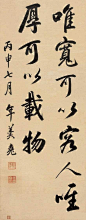 唯寬可以容人唯
厚可以載物
丙申七月年羹堯